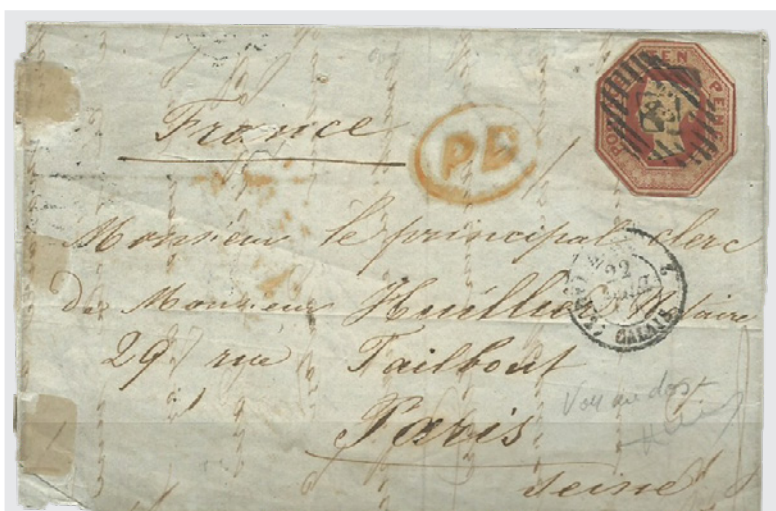 TEN PENCE
France
PD
Monsieur le principal clerc
de Monsieur Huillier Notaire
22
CALAIS
29 rue Taitbout
Voy au dos
Paris
Seine